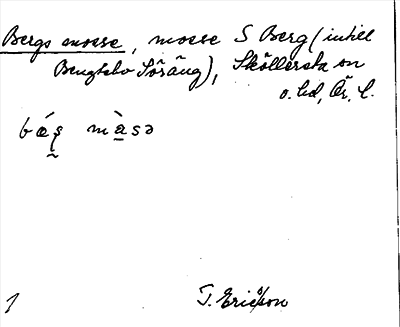 Bergs mosse, mosse S Berg (intill
Bengtsbo Söräng), Sköllersta sn
o. hd, Ör. l.
mòsə
1 T. Ericsson